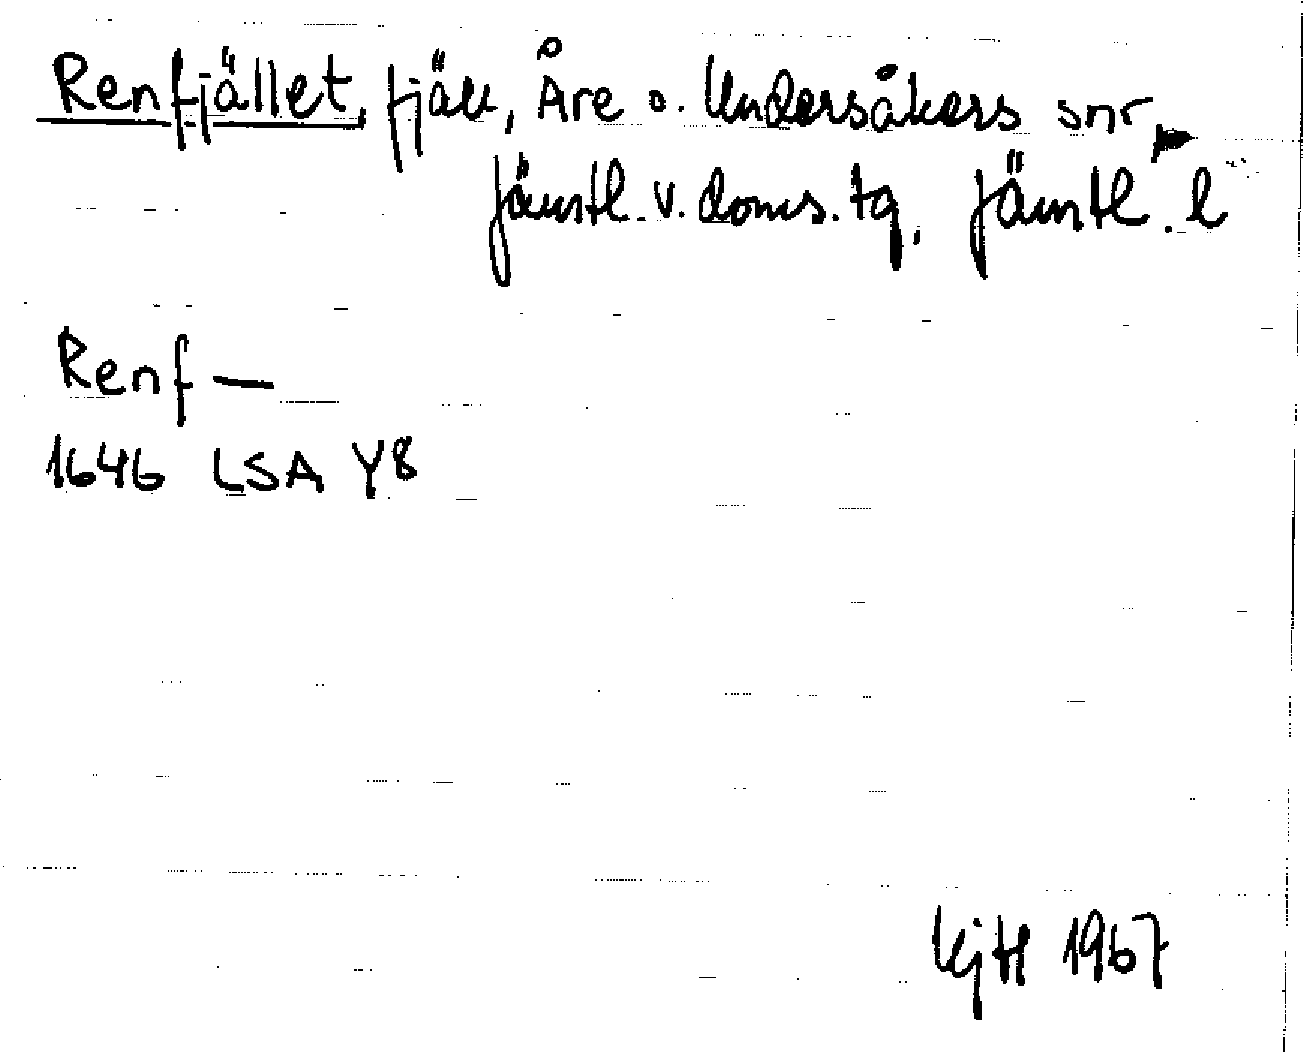 Renfjället, fjäll, Åre o. Undersåkers snr,
Jämtl. v. doms. tg, Jämtl. l
Renf —
1646 LSA Y8
KjH 1967